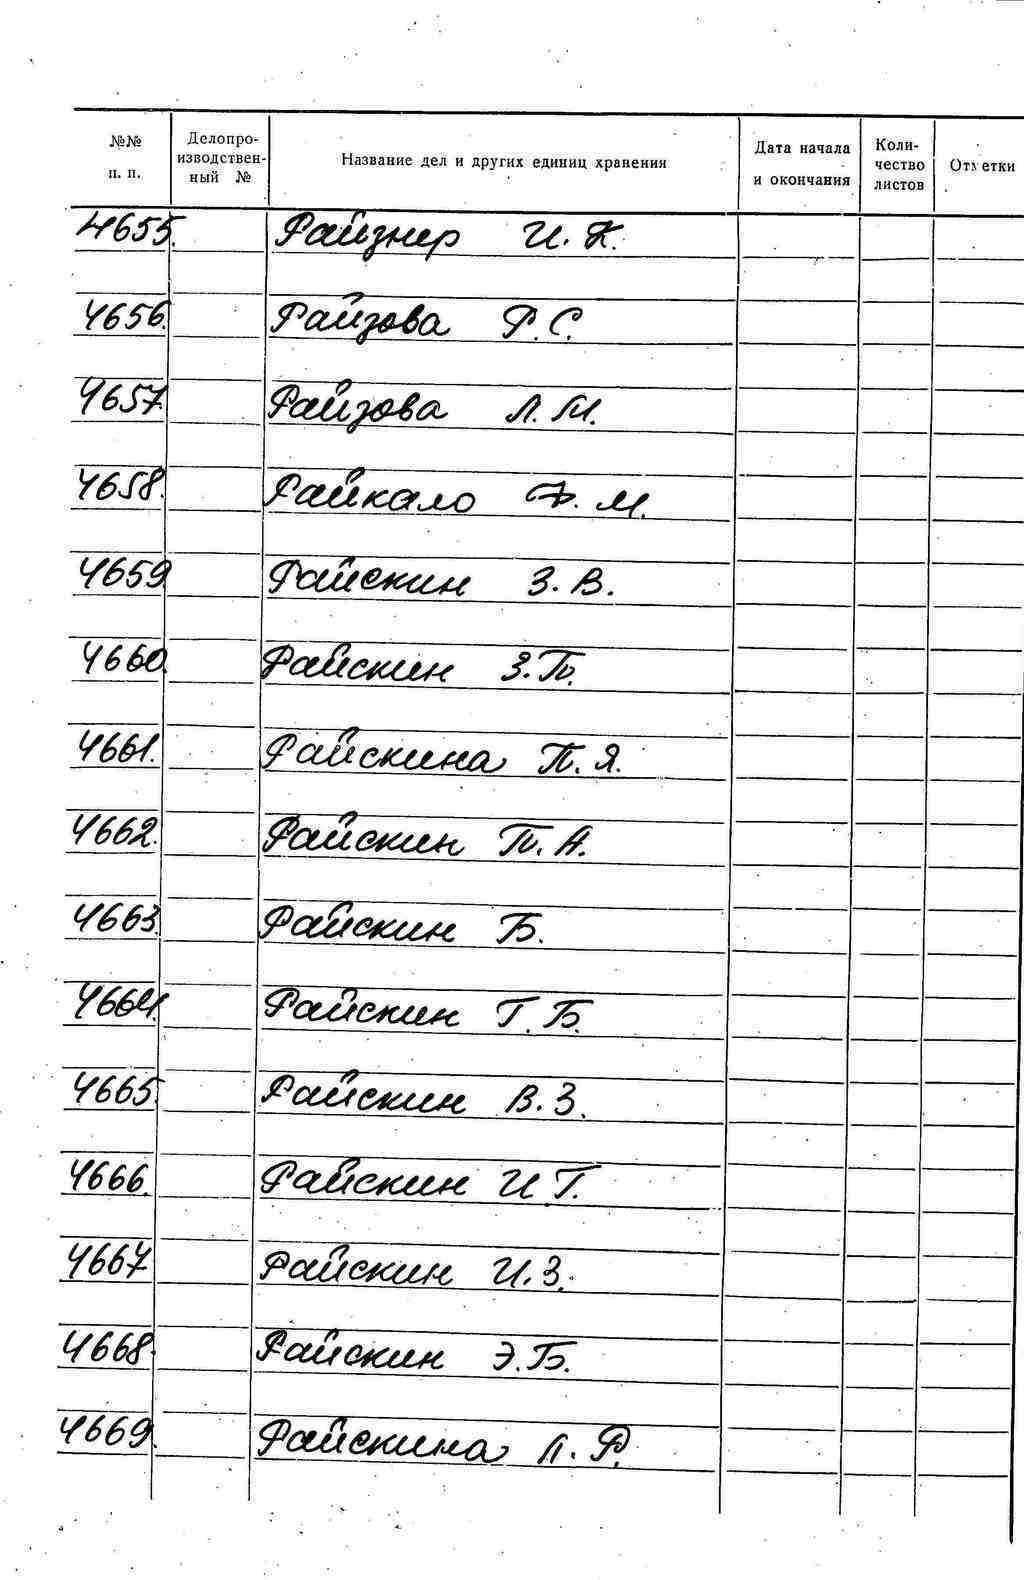 №№ п. п. Делопроизводственный № Название дел и других единиц хранения Дата начала и окончания Количество листов Отметки
4655. Райзнер И. К.
4656. Райзова Р. С.
4657. Райзова Л. М.
4658. Райкало Ф. М.
4659 Райскин З. В.
4660. Райскин З. П.
4661. Райскина П. Я.
4662. Райскин П. А.
4663. Райскин Б.
4664. Райскин Г. Б.
4665. Райскин В. З.
4666. Райскин И Г.
4667 Райскин И. З.
4668. Райскин Э. Б.
4669. Райскина Л. Р.